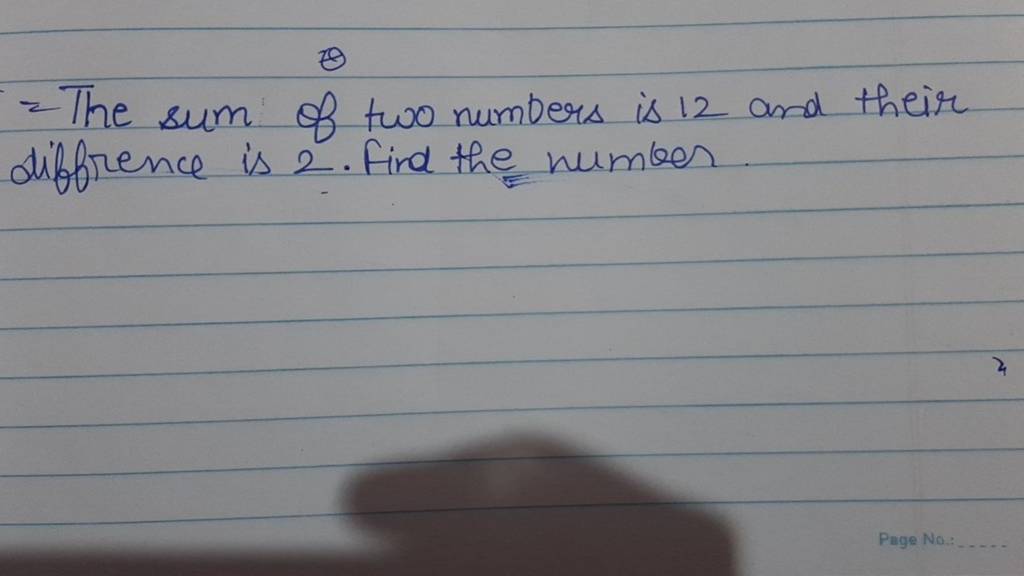 = The sum of two numbers is 12 and their
diffrence is 2. find the number.
2
Page No.:_____